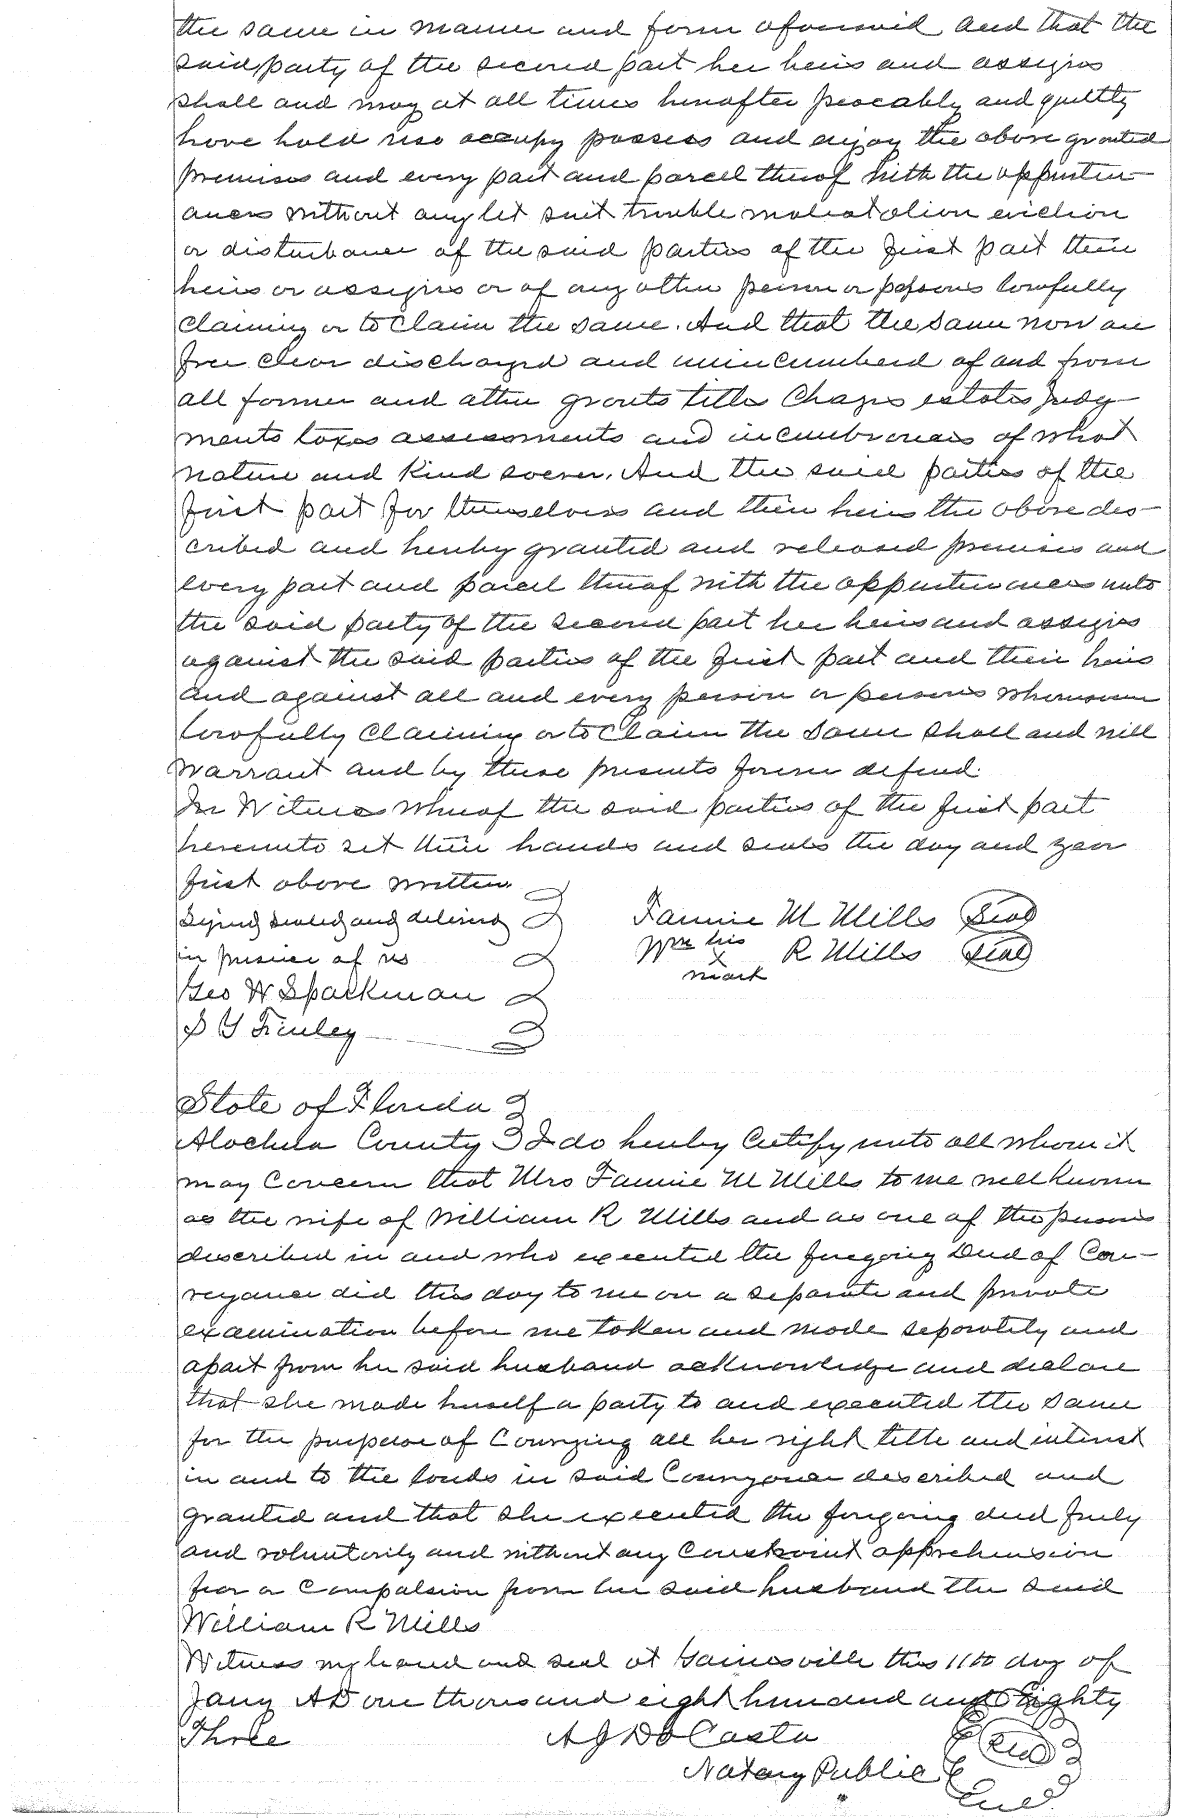 the same in manner and form aforesaid and that the
said party of the second part her heirs and assigns
shall and may at all times hereafter peacably and quietly
have hold use occupy possess and enjoy the above granted
premises and every part and parcel thereof with the appurten-
ances without any let suit trouble molestation eviction
or disturbance of the said parties of the first part their
heirs or assigns or of any other person or persons lawfully
claiming or to claim the same. And that the same now are
free clear discharged and unincumberd of and from
all former and other grants titles charges estates judg-
ments taxes assessments and incumbrances of what
nature and kind soever. And the said parties of the
first part for themselves and their heirs the above des-
cribed and hereby granted and released premises and
every part and parcel thereof with the appurtenances unto
the said party of the second part her heirs and assigns
against the said parties of the first part and their heirs
and against all and every person or persons whomsoever
lawfully claiming or to claim the same shall and will
warrant and by these presents forever defend.
In Witness whereof the said parties of the first part
hereunto set their hands and seals the day and year
first above written.
Signed sealed and delivered
in presence of us
Geo W Sparkman
S Y Finley
Fannie M Mills Seal
Wm his R Mills Seal
x
mark
State of Florida
Alachua County I do hereby certify unto all whom it
may concern that Mrs Fannie M Mills to me well known
as the wife of William R Mills and as one of the persons
described in and who executed the foregoing Deed of Con-
veyance did this day to me on a separate and private
examination before me taken and made seperately and
apart from her said husband acknowledge and declare
that she made herself a party to and executed the same
for the purpose of conveying all her right title and interest
in and to the lands in said conveyance described and
granted and that she executed the foregoing deed freely
and voluntarily and without any constraint apprehension
fear or compulsion from her said husband the said
William R Mills
Witness my hand and seal at Gainesville this 11th day of
Jany AD one thousand eight hundred and Eighty
Three A J Da Costa
Notary Public
Seal